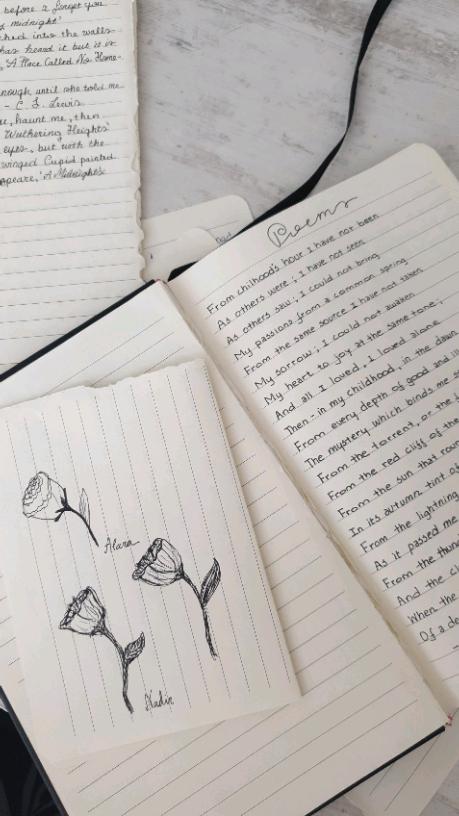 before I forget you
midnight'
ched into the walls
has heard it but is is
'A Place Called No Home-
nough until she told me
- C. S. Lewis
haunt me, then
Wuthering Heights'
eyes, but with the
winged Cupid painted
peare, 'A Midnight's
Poems
From chilhood's hour I have not been
As others were; I have not seen
As others saw; I could not bring
My passions from a common spring
From the same source I have not taken
My sorrow; I could not awaken
My heart to joy at the same tone;
And all I loved, I loved alone
Then - in my childhood, in the dawn
From every depth of good and ill
The mystery which binds me s
From the torrent, or the f
From the red cliff of the
From the sun that roun
In its autumn tint of
From the lightning
As it passed me
From the thun
And the cl
When the
Of a de
Alara
Nadir